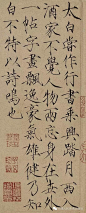 太白嘗作行書乘興踏月西入
酒家不覺人物兩忘身在世外
一帖字畫飄逸豪氣雄健乃知
白不特以詩鳴也